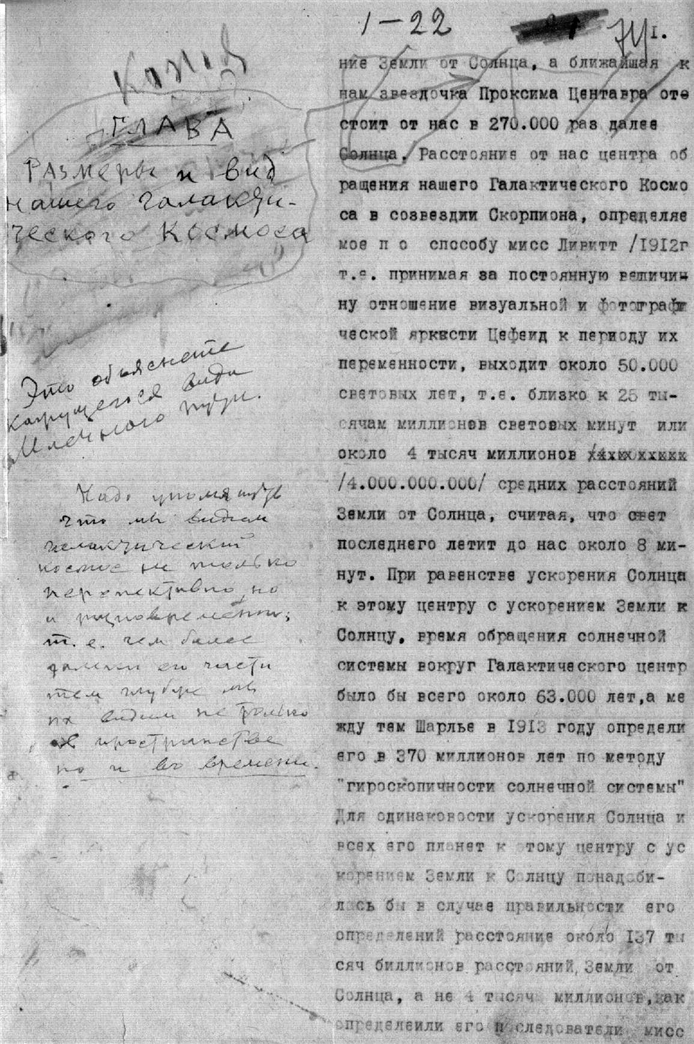 1-22
1.
ГЛАВА
Размеры и вид
нашего галакти-
ческого Космоса
Это объясняете
кажущегося вида
Млечного пути.
Надо упомянуть
что мы видим
галактический
космос не только
перспективно, но
и разновременно;
т.е. чем более
далеки его части
тем глубже мы
их видим не только
в пространстве
но и во времени.
ние Земли от Солнца, а ближайшая к
нам звездочка Проксима Центавра отс
стоит от нас в 270.000 раз далее
Солнца. Расстояние от нас центра об
ращения нашего Галактического Космо
са в созвездии Скорпиона, определяе
мое п о способу мисс Ливитт /1912г
т.е. принимая за постоянную величи-
ну отношение визуальной и фотографи
ческой яркксти Цефеид к периоду их
переменности, выходит около 50.000
световых лет, т.е. близко к 25 ты-
сячам миллионов световых минут или
около 4 тысяч миллионов
/4.000.000.000/ средних расстояний
Земли от Солнца, считая, что свет
последнего летит до нас около 8 ми-
нут. При равенстве ускорения Солнца
к этому центру с ускорением Земли к
Солнцу, время обращения солнечной
системы вокруг Галактического центр
было бы всего около 63.000 лет,а ме
жду тем Шарлье в 1913 году определи
его в 370 миллионов лет по методу
"гироскопичности солнечной системы"
Для одинаковости ускорения Солнца и
всех его планет к этому центру с ус
корением Земли к Солнцу понадоби-
лось бы в случае правильности его
определений расстояние около 137 ты
сяч биллионов расстояний Земли от
Солнца, а не 4 тысяч миллионов,как
определеили его последователи мисс